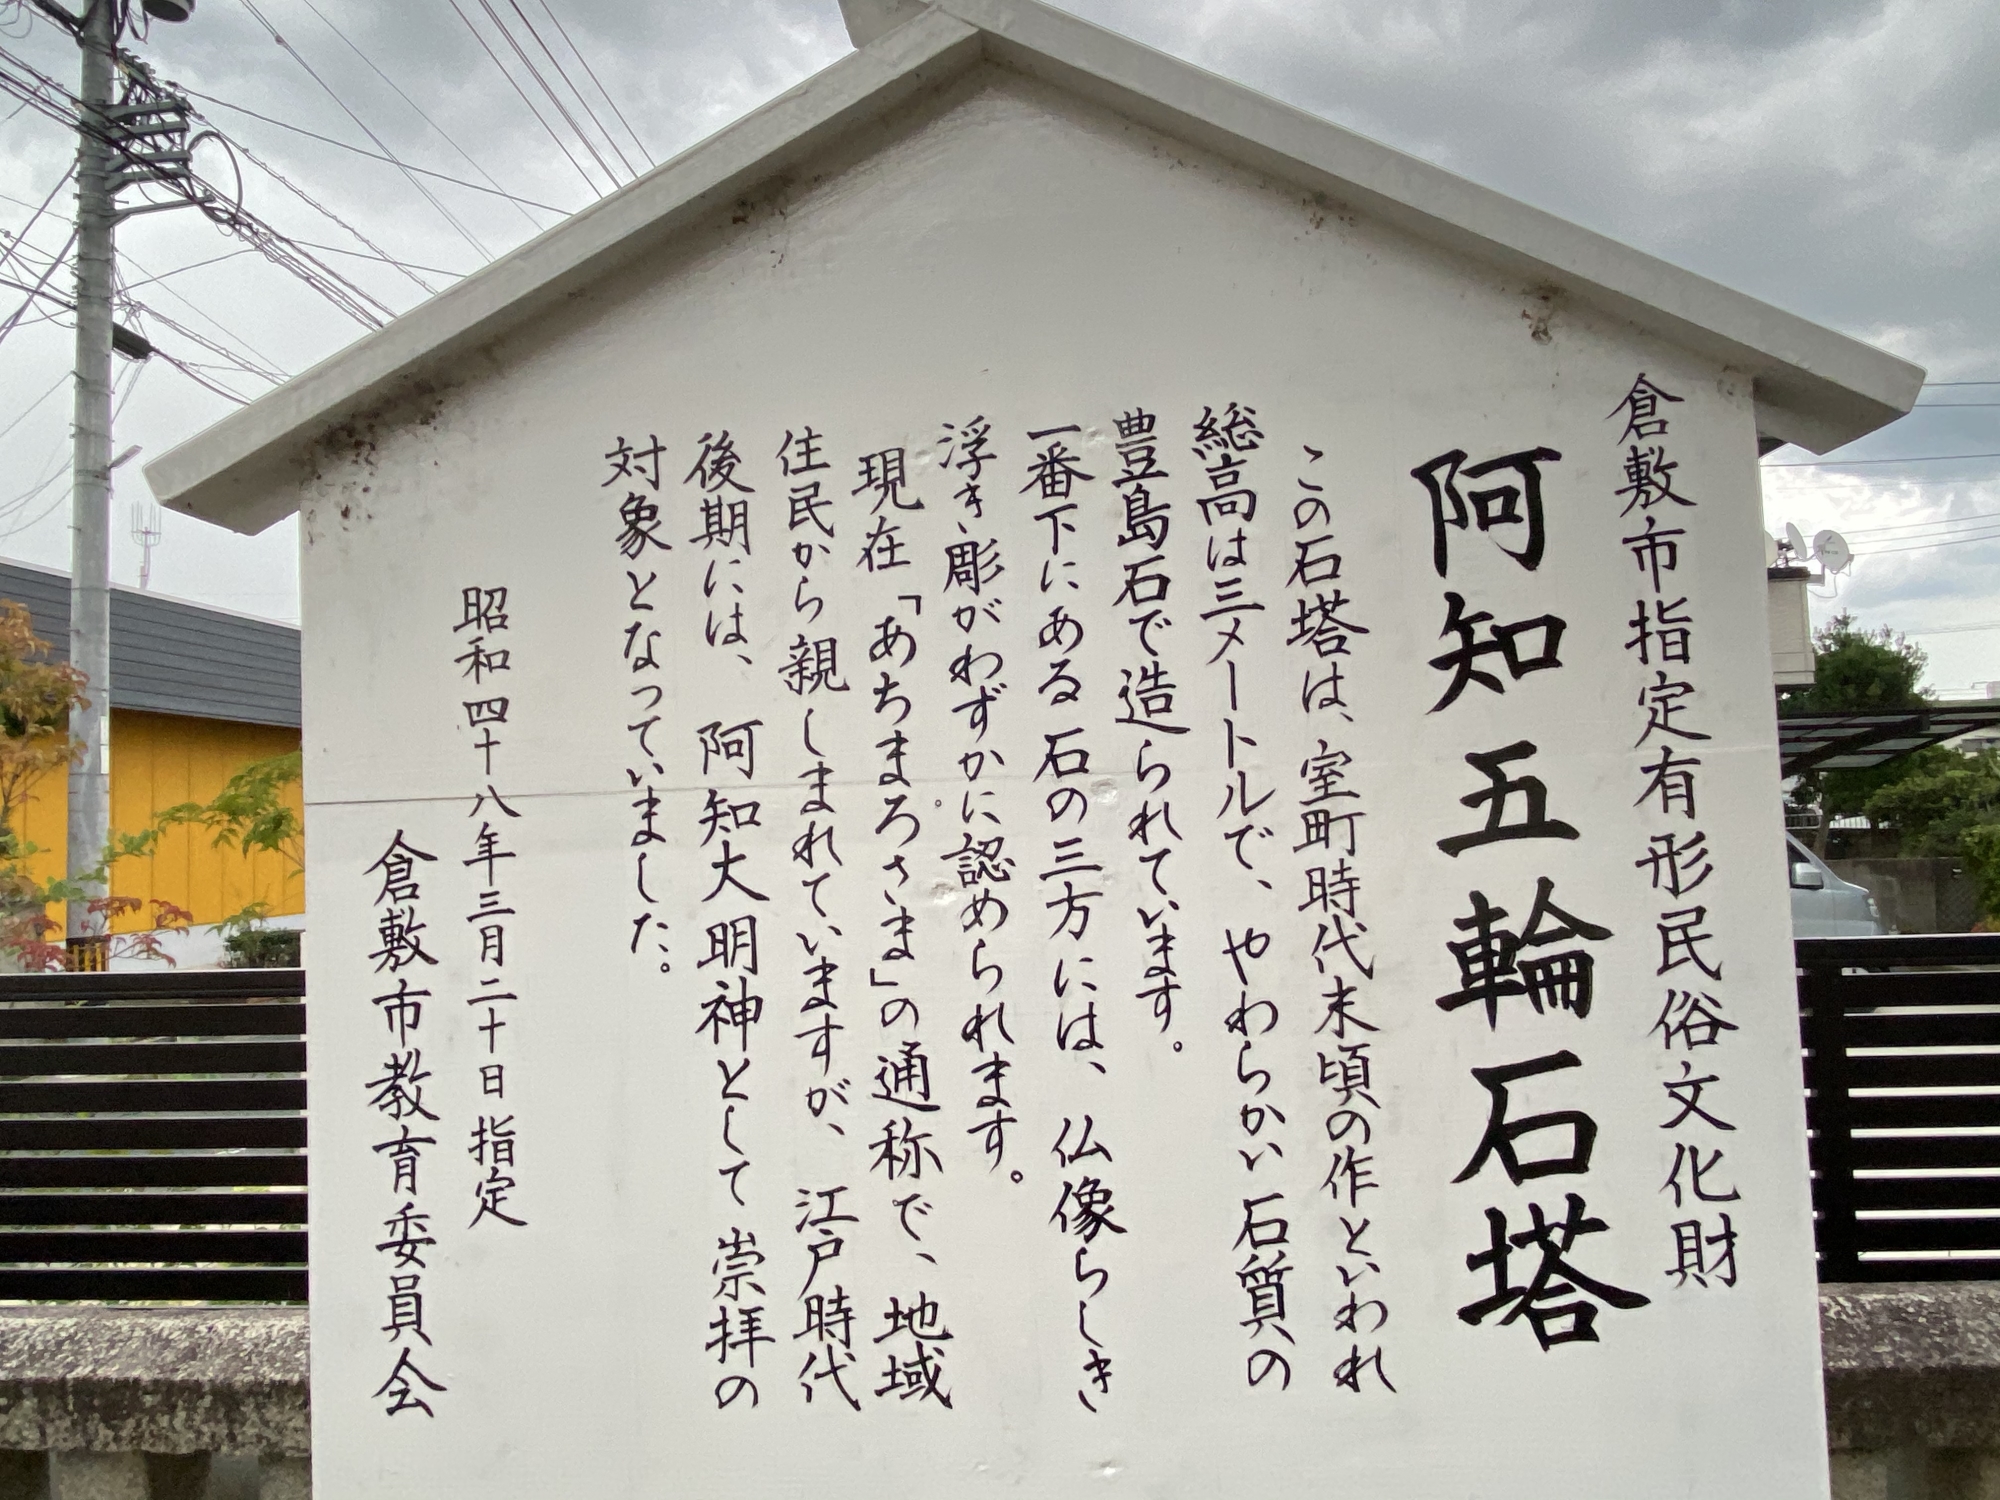 倉敷市指定有形民俗文化財
阿知五輪石塔
この石塔は、室町時代末頃の作といわれ
総高は三メートルで、やわらかい石質の
豊島石で造られています。
一番下にある石の三方には、仏像らしき
浮き彫がわずかに認められます。
現在「あちまろさま」の通称で、地域
住民から親しまれていますが、江戸時代
後期には、阿知大明神として崇拝の
対象となっていました。
昭和四十八年三月二十日指定
倉敷市教育委員会